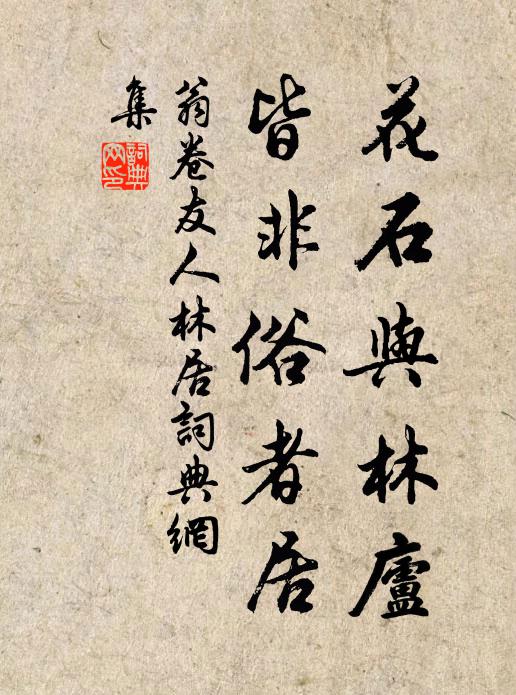 花石與林廬
皆非俗者居
翁卷友人林居詞典網
集
詞典
网印